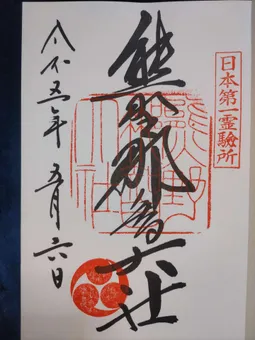 日本第一霊験所
熊野那智大社
令和五年 五月六日